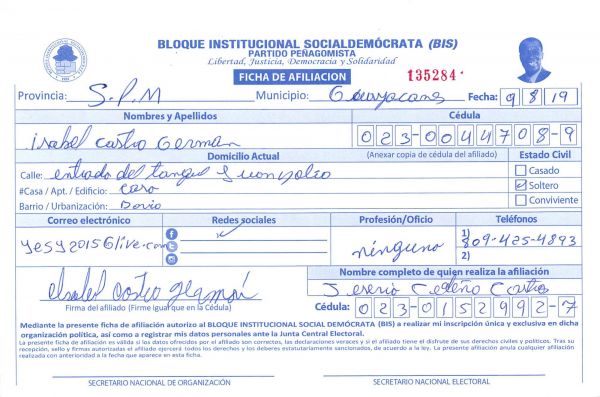 BLOQUE INSTITUCIONAL SOCIALDEMÓCRATA (BIS)
PARTIDO PEÑAGOMISTA
Libertad, Justicia, Democracia y Solidaridad
FICHA DE AFILIACION
135284
Provincia: S.P.M Municipio: Guayacanes Fecha: 9 8 19
Nombres y Apellidos Cédula
isabel Castro German 023-0044708-9
Domicilio Actual (Anexar copia de cédula del afiliado) Estado Civil
Calle: entrada del tanque Casado
#Casa / Apt. / Edificio: Casa Soltero
Barrio / Urbanización: Conviviente
Correo electrónico Redes sociales Profesión/Oficio Teléfonos
yesy2015@live.com ninguno 1) 809-425-4893
2)
Nombre completo de quien realiza la afiliación
Isabel Castro Germán Cedeño Castro
Firma del afiliado (Firme igual que en la Cédula) Cédula: 023-0152992-7
Mediante la presente ficha de afiliación autorizo al BLOQUE INSTITUCIONAL SOCIAL DEMÓCRATA (BIS) a realizar mi inscripción única y exclusiva en dicha
organización política, así como a registrar mis datos personales ante la Junta Central Electoral.
La presente ficha de afiliación es válida si los datos ofrecidos por el afiliado son correctos, las declaraciones veraces y si el afiliado tiene el disfrute de sus derechos civiles y políticos. Tras su
recepción, sello y firmas autorizadas el afiliado ejercerá todos los derechos y los deberes estatutariamente sancionados, de acuerdo a la ley. La presente afiliación anula cualquier afiliación
realizada con anterioridad a la fecha que aparece en esta ficha.
SECRETARIO NACIONAL DE ORGANIZACIÓN SECRETARIO NACIONAL ELECTORAL